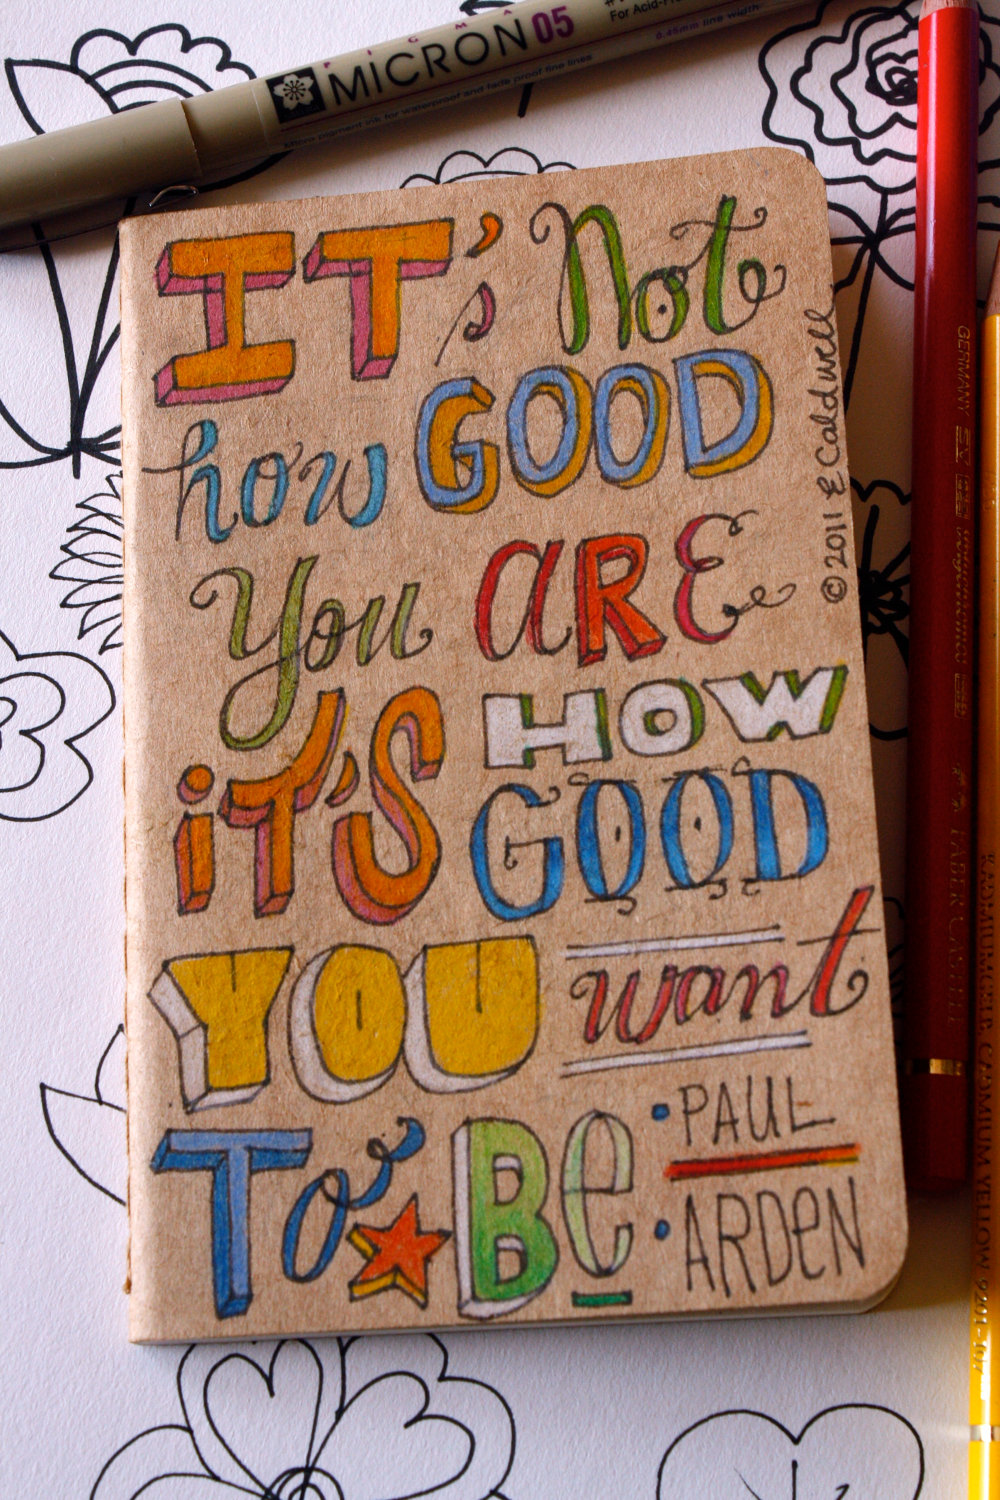 PIGMA
MICRON 05
Micro pigment ink for waterproof and fade proof fine lines
For Acid-Fr
0.45mm line width
IT's Not
how GOOD
You ARE
iT'S HOW
GOOD
YOU want
TO BE
PAUL
ARDEN
© 2011 E Caldwell
GERMANY
FABER CASTELL
KADMIUMGELB CADMIUM YELLOW 9201-107